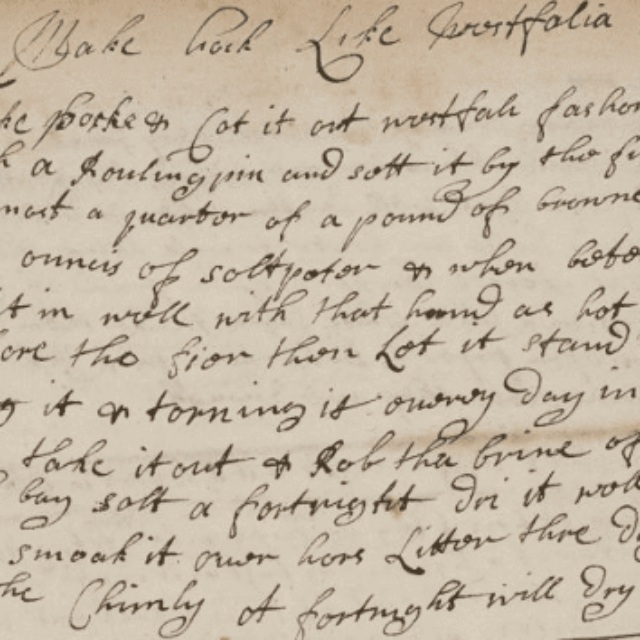 Make hock Like westfalia
ke porke & Cot it out westfali fashon
a Roulingpin and sett it by the fi
most a quarter of a pound of browne
ouncis of soltpeter & when bete
t in well with that hand as hot
ore the fior then Let it stand
g it & torning it ouerey day in
take it out & Rob tha brine of
bay solt a fortnight dri it well
smoak it ouer hors Litter thre d
he Chimly A fortnight will dry